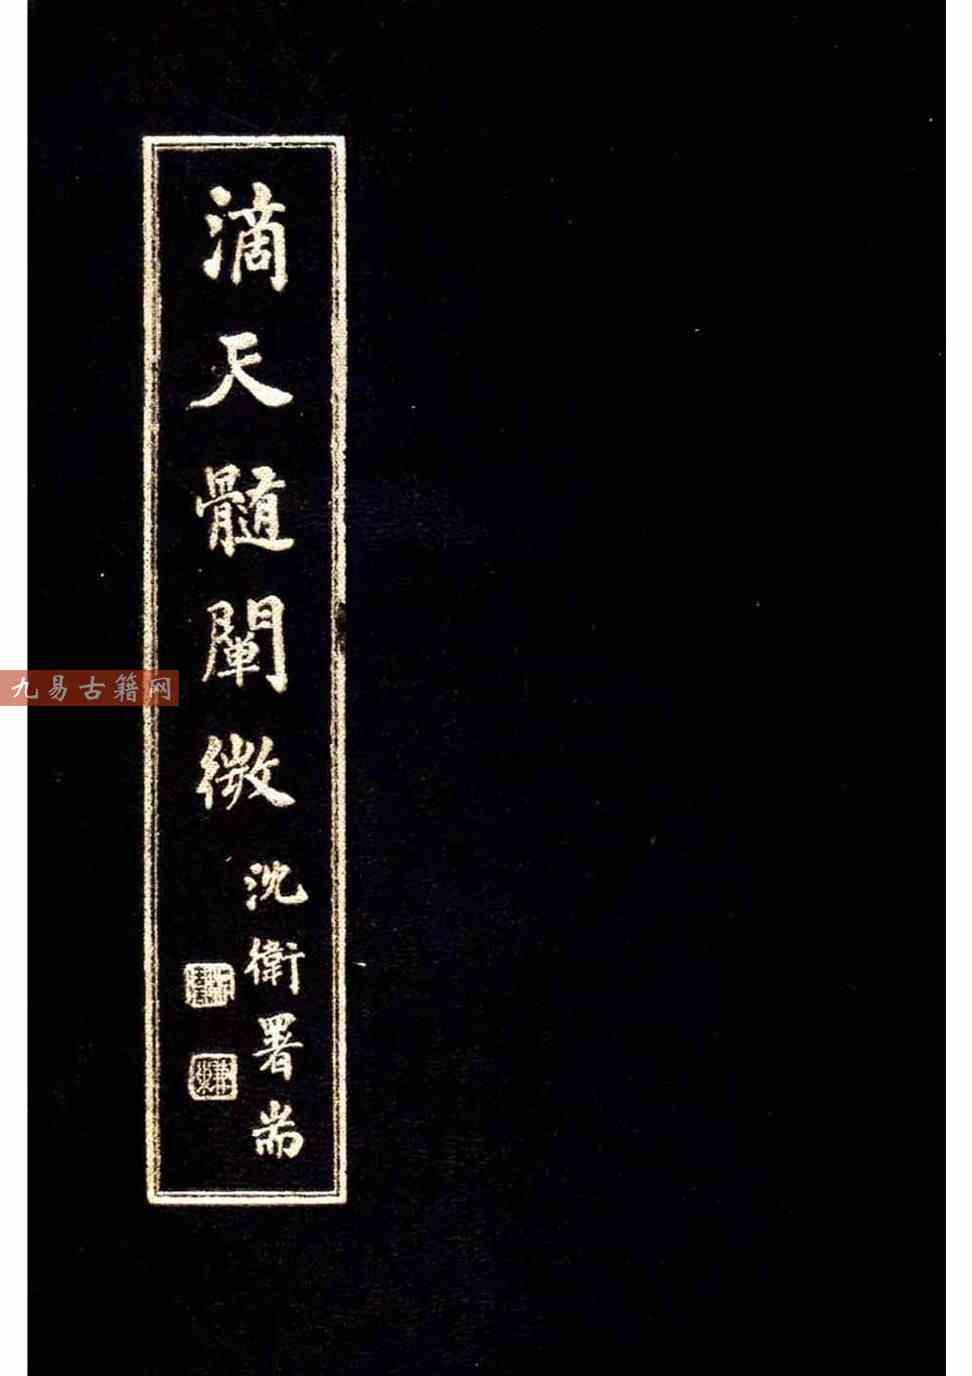 滴天髓闡微
沈衛署耑
九易古籍网